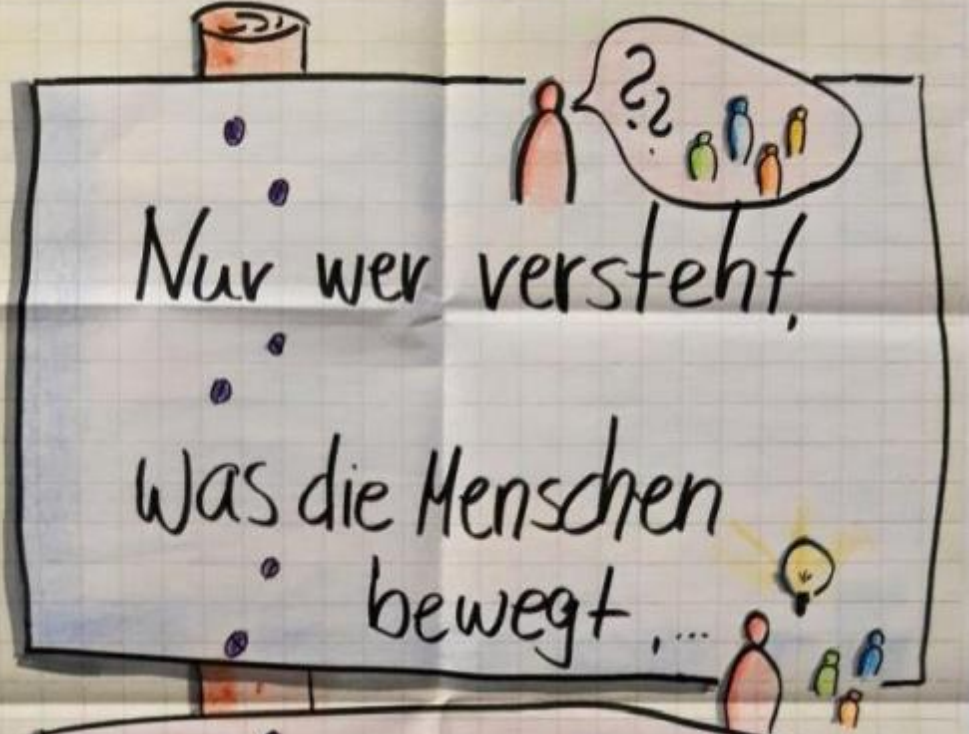 ??
Nur wer versteht,
Was die Menschen
bewegt,...